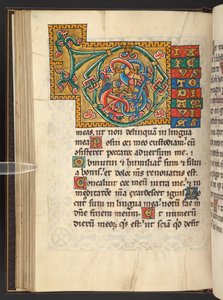 D
meas, ut non delinquā in lingua
mea Posui ori meo custodiam cū
consisteret peccator adversum me.
Obmutui et humiliat sum et silui
a bonis et dolor ms renovatus est.
Concaluit cor meū intra me et in
meditatiōe mea exardescet ignis
Locut sum in lingua mea notū fac m
dn̄e finem meum. Et numerū
dierū meoꝝ qs est ut sciā qd desit